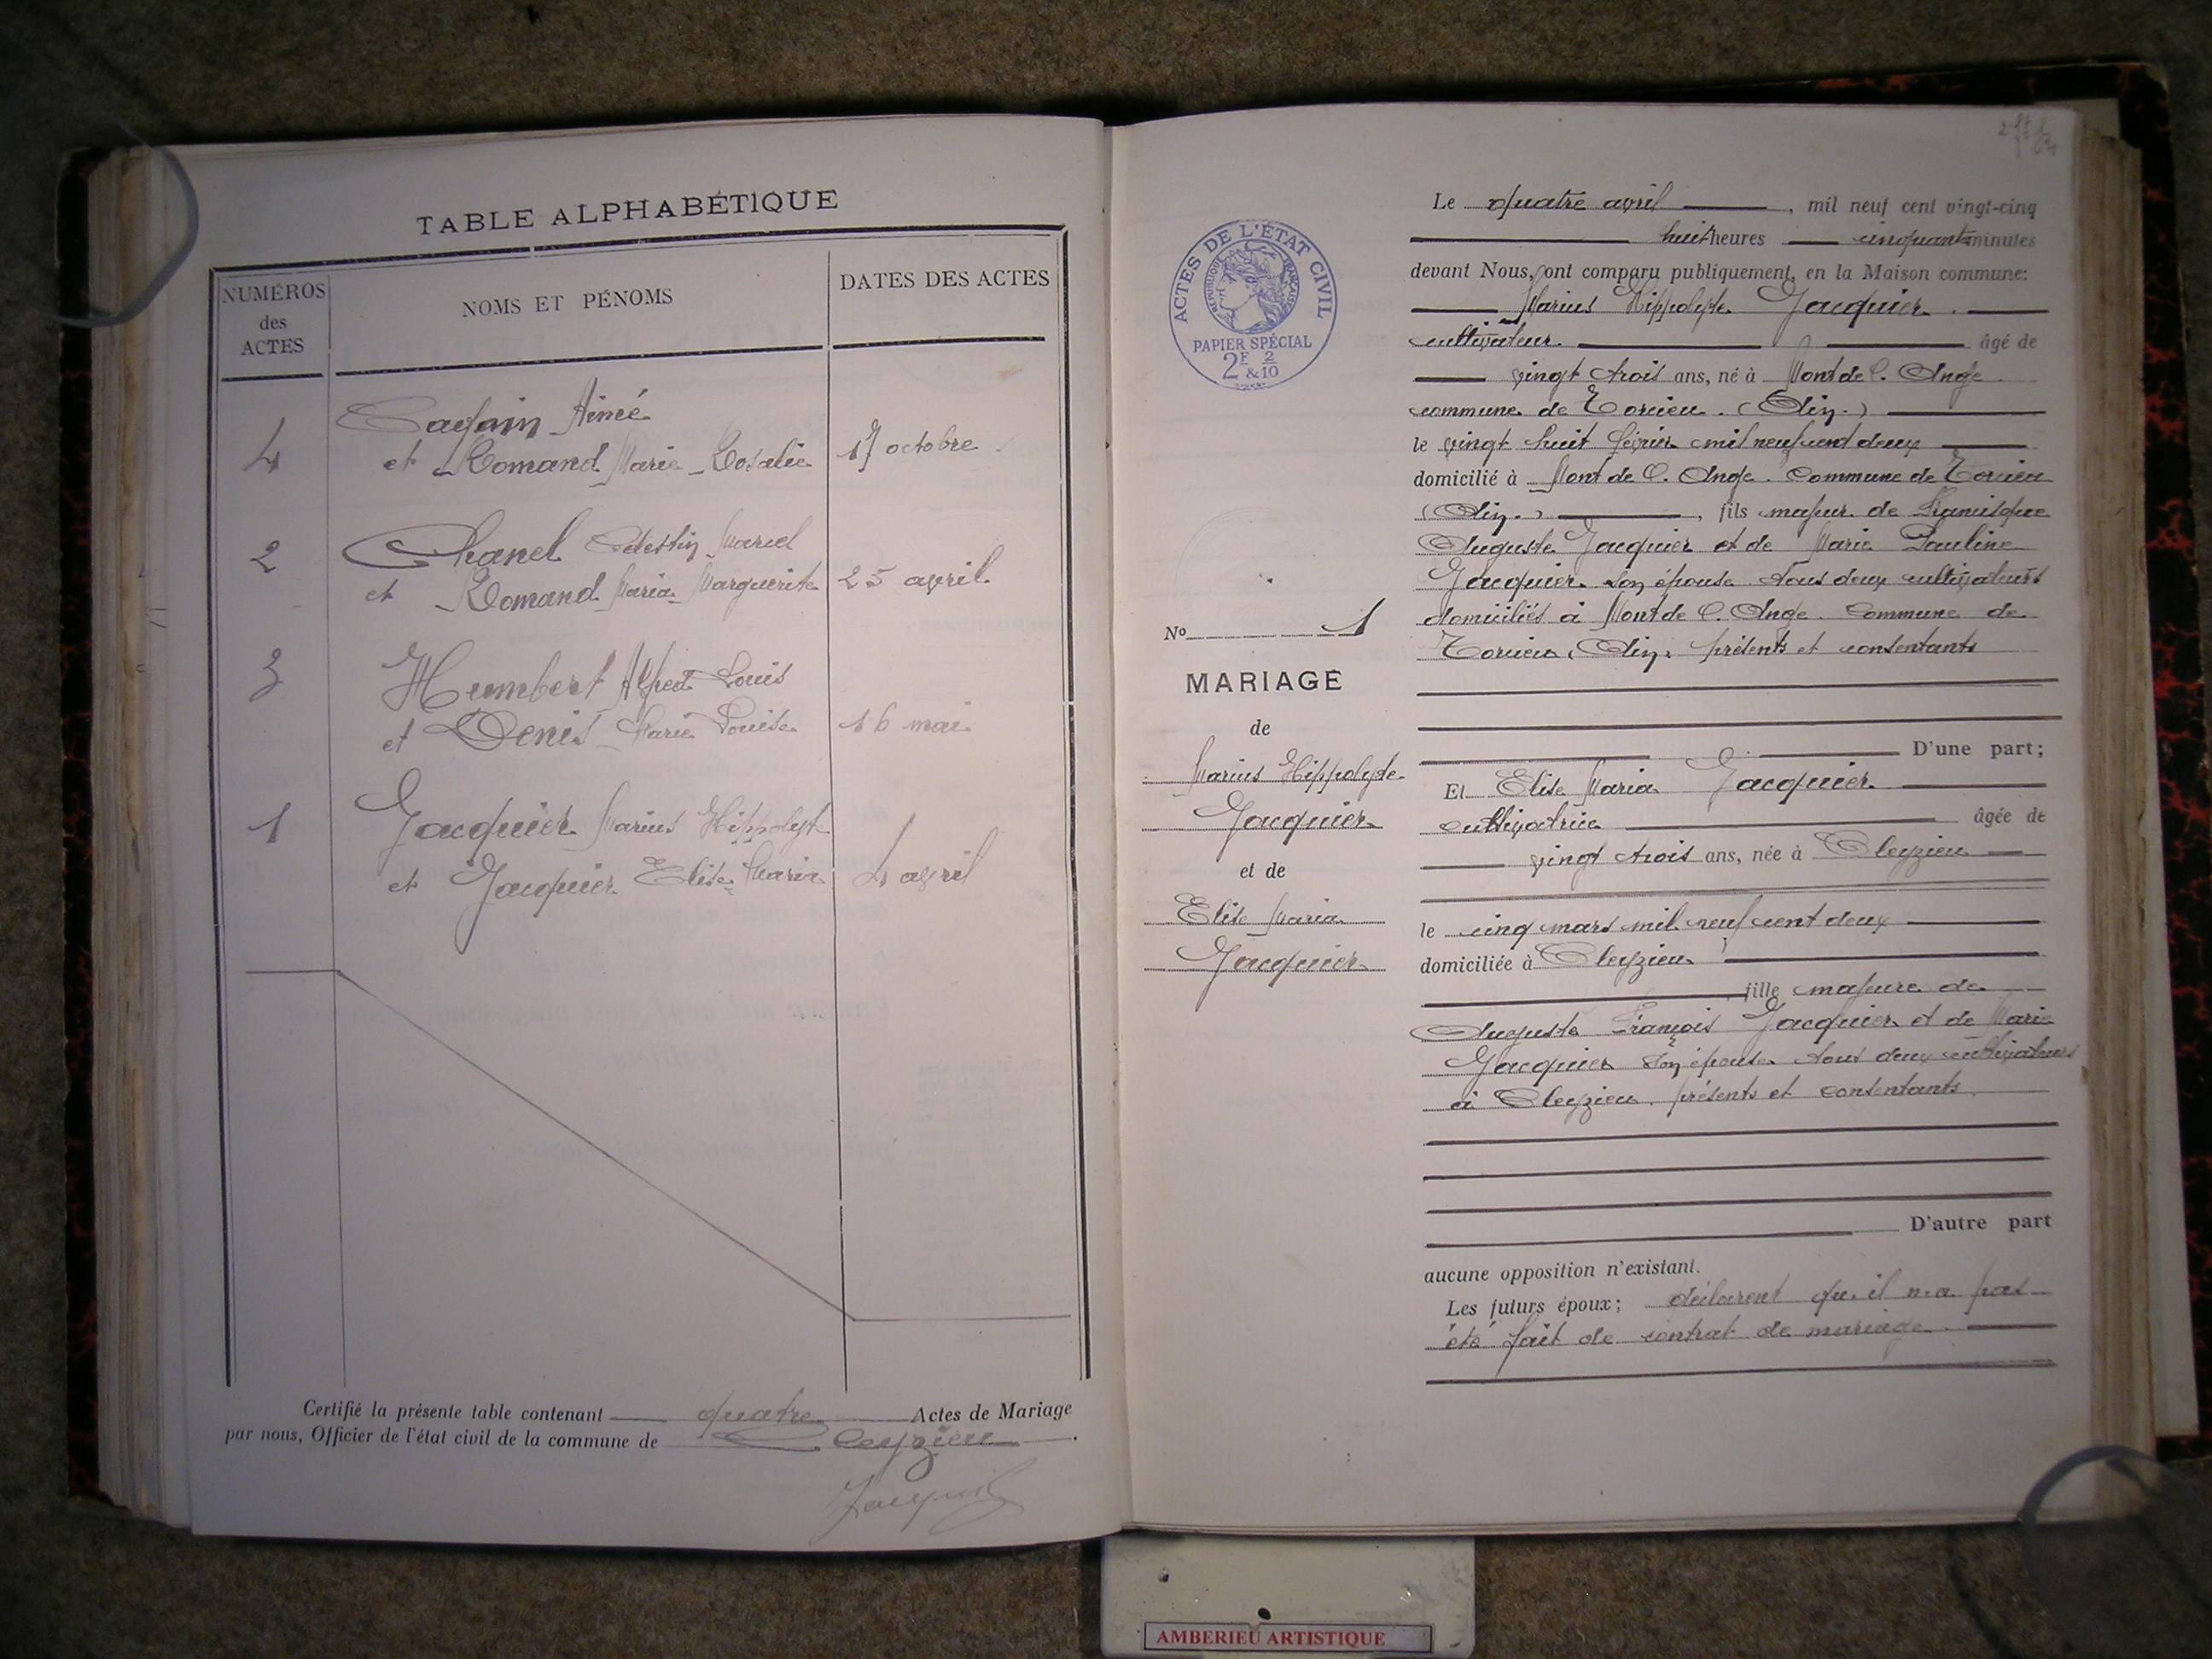 TABLE ALPHABÉTIQUE
NUMÉROS
des
ACTES
NOMS ET PÉNOMS
DATES DES ACTES
4
Aimé
et Romand Marie Rosalie
17 octobre
2
Chanel Célestin Marcel
et Romand Maria Marguerite
25 avril
3
Humbert Alfred Louis
et Denis Marie Louise
16 mai
1
Jacquier Marius Hippolyt
et Jacquier Elise Maria
4 avril
Certifié la présente table contenant quatre Actes de Mariage
par nous, Officier de l'état civil de la commune de Cleyzieu.
ACTES DE L'ÉTAT CIVIL
RÉPUBLIQUE FRANÇAISE
PAPIER SPÉCIAL
2F 2
& 10
No 1
MARIAGE
de
Marius Hippolyte
Jacquier
et de
Elise Maria
Jacquier
Le quatre avril, mil neuf cent vingt-cinq
huit heures cinquante minutes
devant Nous, ont comparu publiquement, en la Maison commune:
Marius Hippolyte Jacquier.
cultivateur âgé de
vingt trois ans, né à Mont de l'Ange
commune de Torcieu. (Ain.)
le vingt huit février mil neuf cent deux
domicilié à Mont de l'Ange. Commune de Torcieu
(Ain.), fils majeur de Francisque
Auguste Jacquier et de Marie Pauline
Jacquier son épouse tous deux cultivateurs
domiciliés à Mont de l'Ange. Commune de
Torcieu (Ain) présents et consentants
D'une part;
Et Elise Maria Jacquier
cultivatrice âgée de
vingt trois ans, née à Cleyzieu
le cinq mars mil neuf cent deux
domiciliée à Cleyzieu
fille majeure de
Auguste François Jacquier et de Marie
Jacquier son épouse tous deux cultivateurs
à Cleyzieu. présents et consentants.
D'autre part
aucune opposition n'existant.
Les futurs époux; déclarent qu'il n'a pas
été fait de contrat de mariage.
AMBERIEU ARTISTIQUE